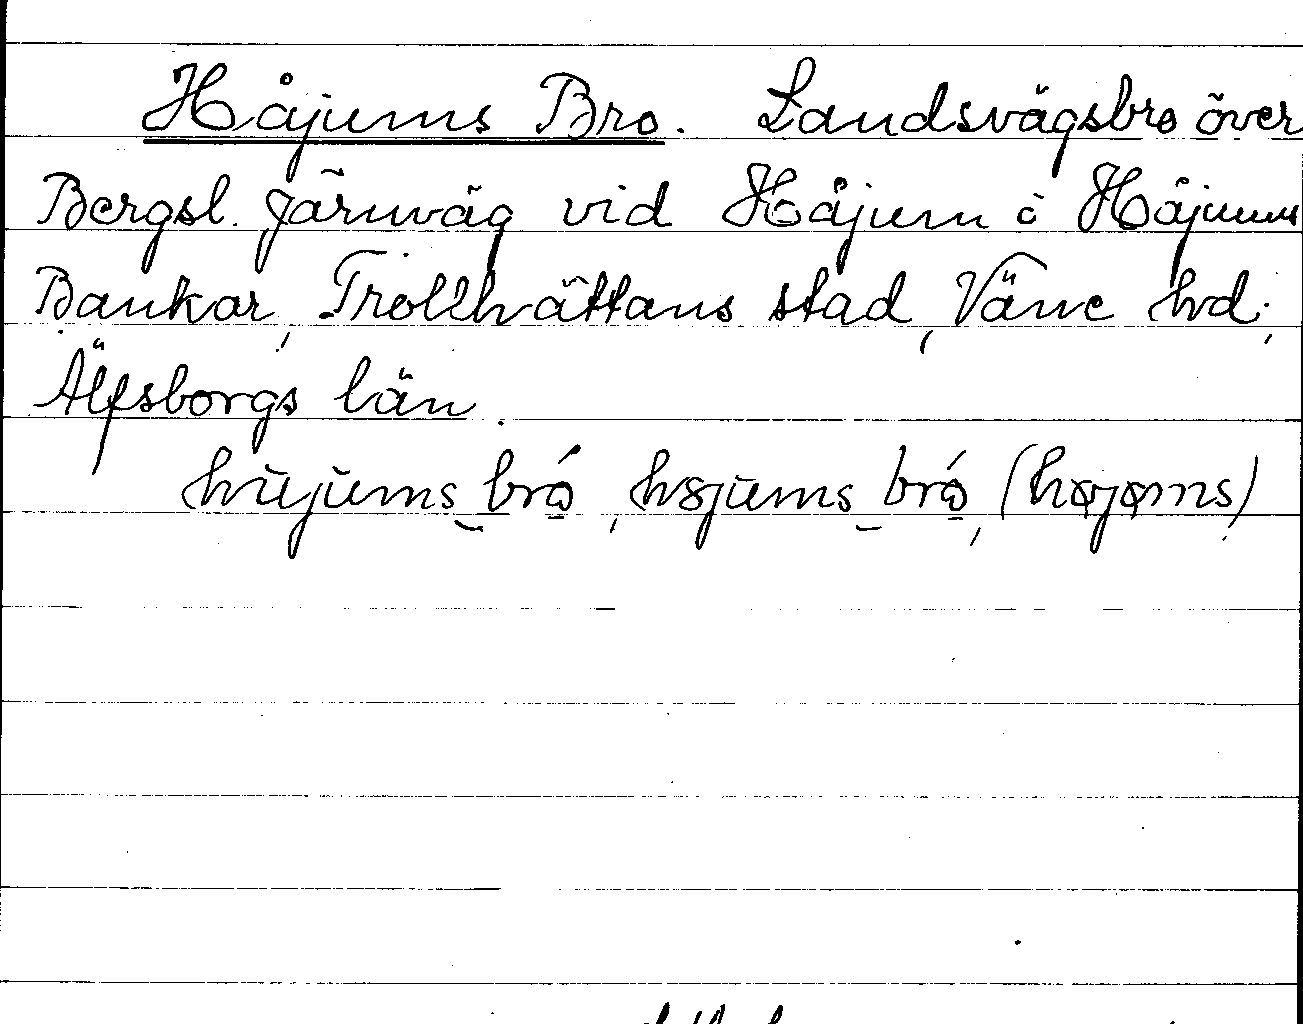 Håjums Bro. Landsvägsbro över
Bergsl. järnväg vid Håjum i Håjums
Bankar, Trollhättans stad, Väne hd.,
Älfsborgs län.
hŭjŭms‿bró̱, hȣjŭms‿bró̱, (